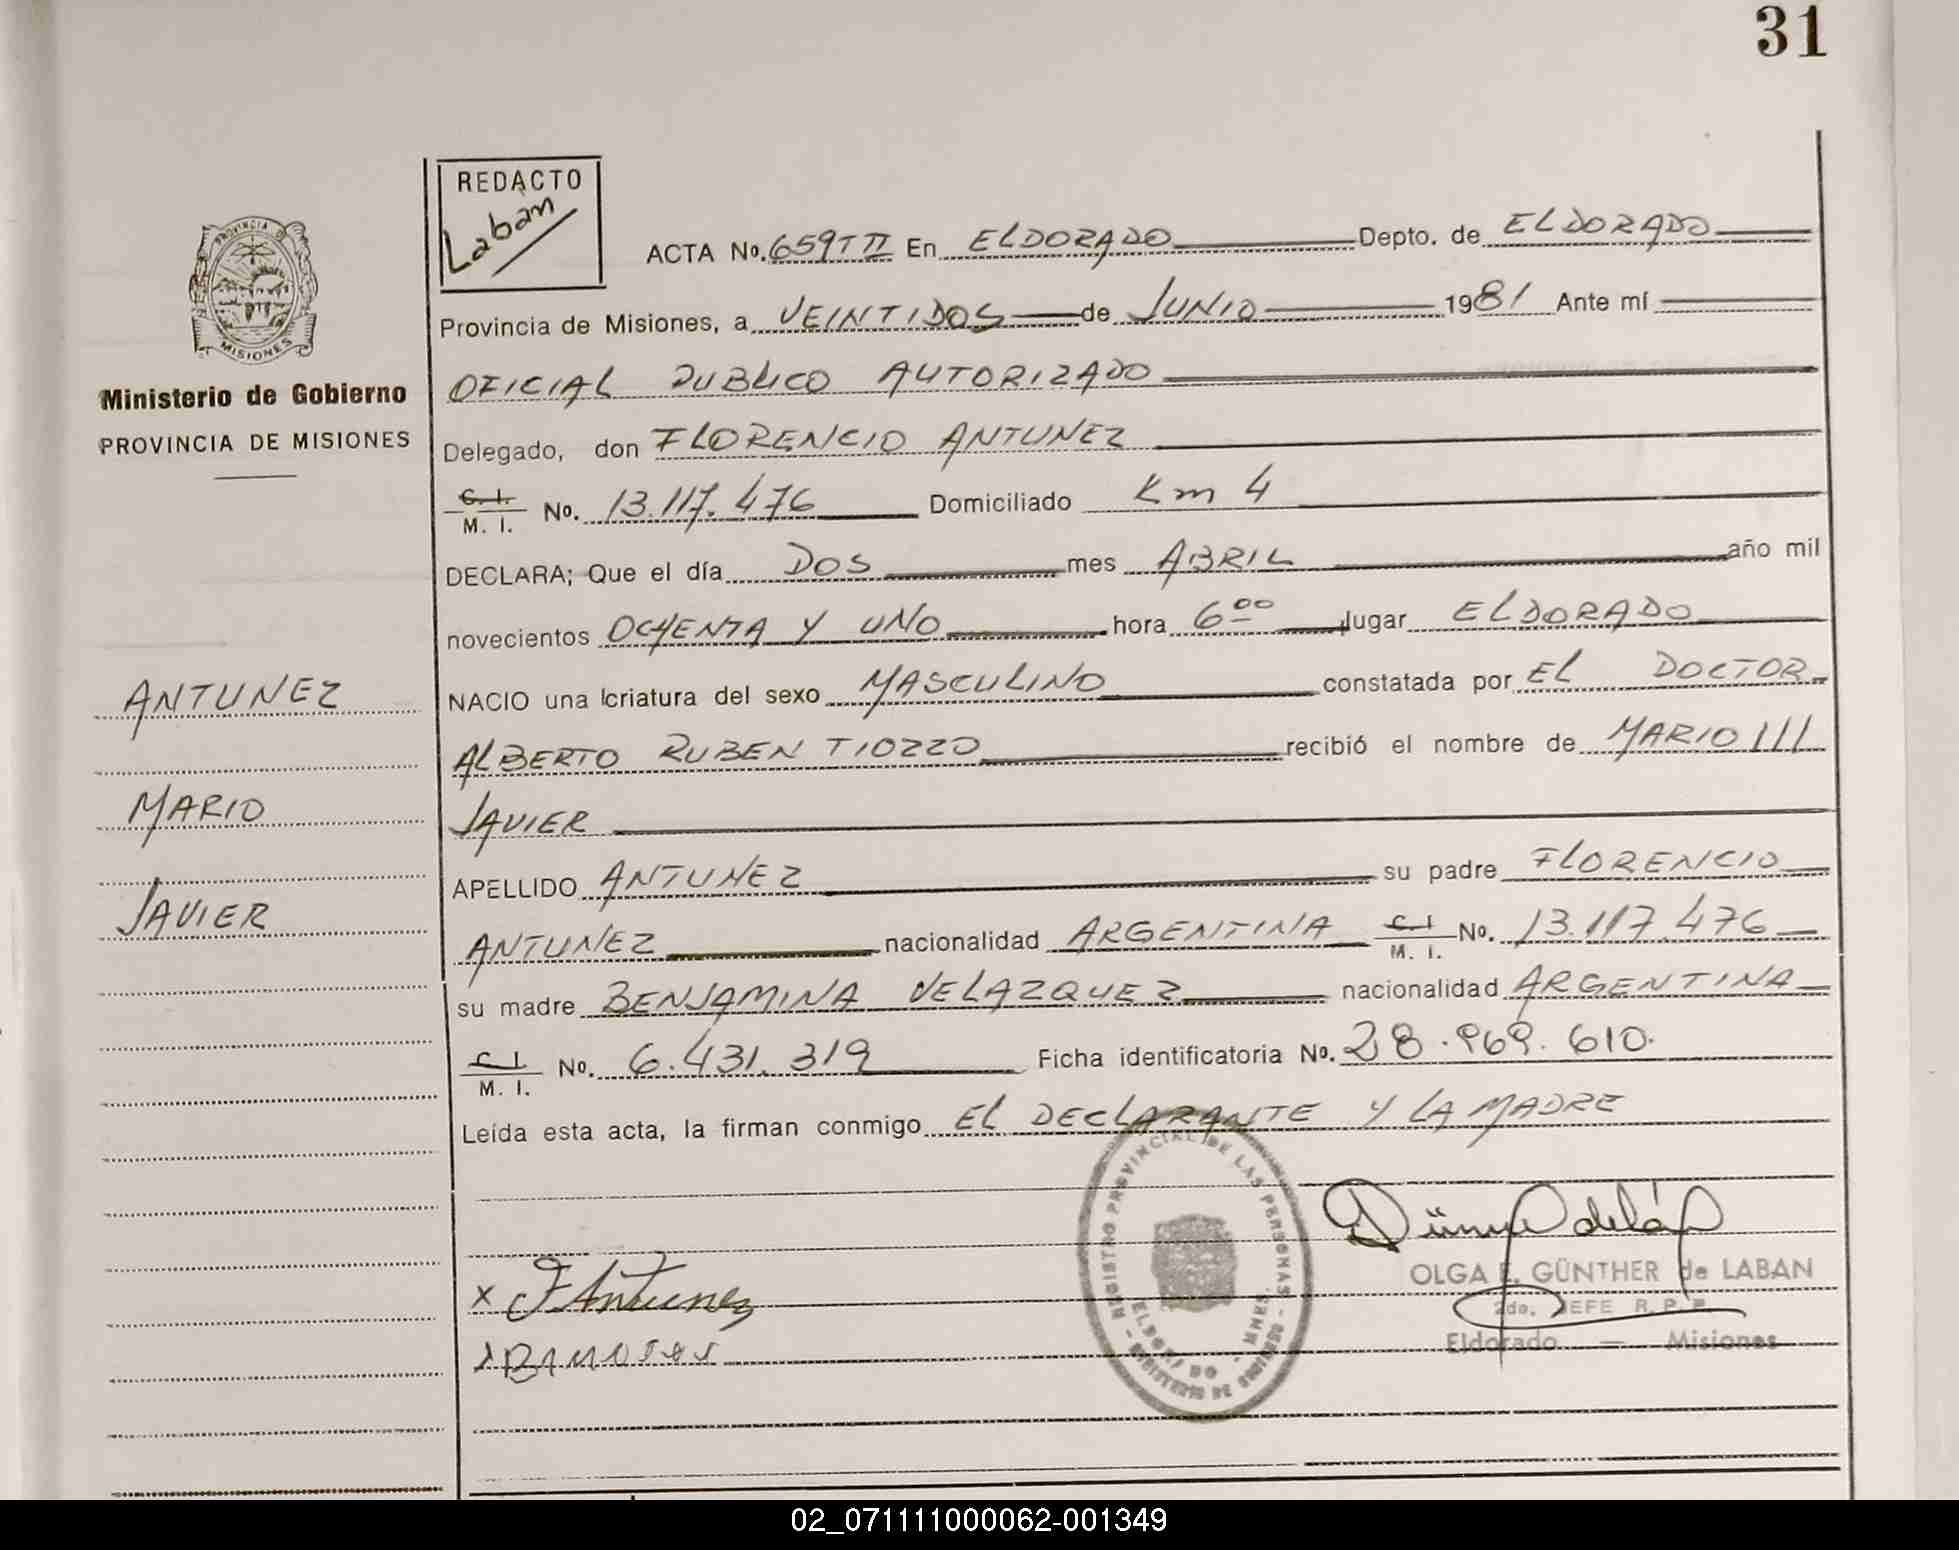 31
REDACTO
Laban
ACTA No. 659 T II En ELDORADO Depto. de ELDORADO
Provincia de Misiones, a VEINTIDOS de JUNIO 1981 Ante mí
OFICIAL PUBLICO AUTORIZADO
Delegado, don FLORENCIO ANTUNEZ
C. I. / M. I. No. 13.117.476 Domiciliado Km 4
DECLARA; Que el día DOS mes ABRIL año mil
novecientos OCHENTA Y UNO hora 6 00 lugar ELDORADO
NACIO una criatura del sexo MASCULINO constatada por EL DOCTOR
ALBERTO RUBEN TIOZZO recibió el nombre de MARIO ///
JAVIER
APELLIDO ANTUNEZ su padre FLORENCIO
ANTUNEZ nacionalidad ARGENTINA C. I / M. I. No. 13.117.476
su madre BENJAMINA VELAZQUEZ nacionalidad ARGENTINA
C. I. / M. I. No. 6.431.319 Ficha identificatoria No. 28.969.610.
Leída esta acta, la firman conmigo EL DECLARANTE Y LA MADRE
PROVINCIA DE
MISIONES
Ministerio de Gobierno
PROVINCIA DE MISIONES
ANTUNEZ
MARIO
JAVIER
REGISTRO PROVINCIAL DE LAS PERSONAS
ELDORADO - MNES.
x F Antunez
OLGA E. GÜNTHER de LABAN
2do. JEFE R. P. P.
Eldorado — Misiones
02_071111000062-001349